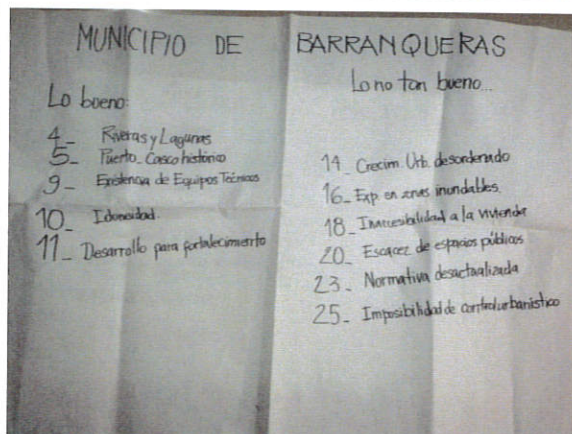 MUNICIPIO DE BARRANQUERAS
Lo bueno:
4_ Riveras y Lagunas
5_ Puerto_Casco histórico
9_ Existencia de Equipos Técnicos
10_ Idoneidad.
11_ Desarrollo para fortalecimiento
Lo no tan bueno...
14_ Crecim. Urb. desordenado
16_ Exp en zonas inundables.
18_ Inaccesibilidad a la vivienda
20_ Escacez de espacios públicos
23_ Normativa desactualizada
25_ Imposibilidad de control urbanístico